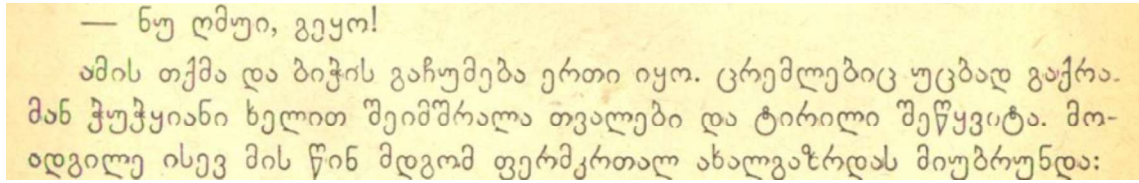 — ნუ ღმუი, გეყო!
ამის თქმა და ბიჭის გაჩუმება ერთი იყო. ცრემლებიც უცბად გაქრა.
მან ჭუჭყიანი ხელით შეიმშრალა თვალები და ტირილი შეწყვიტა. მო-
ადგილე ისევ მის წინ მდგომ ფერმკრთალ ახალგაზრდას მიუბრუნდა: